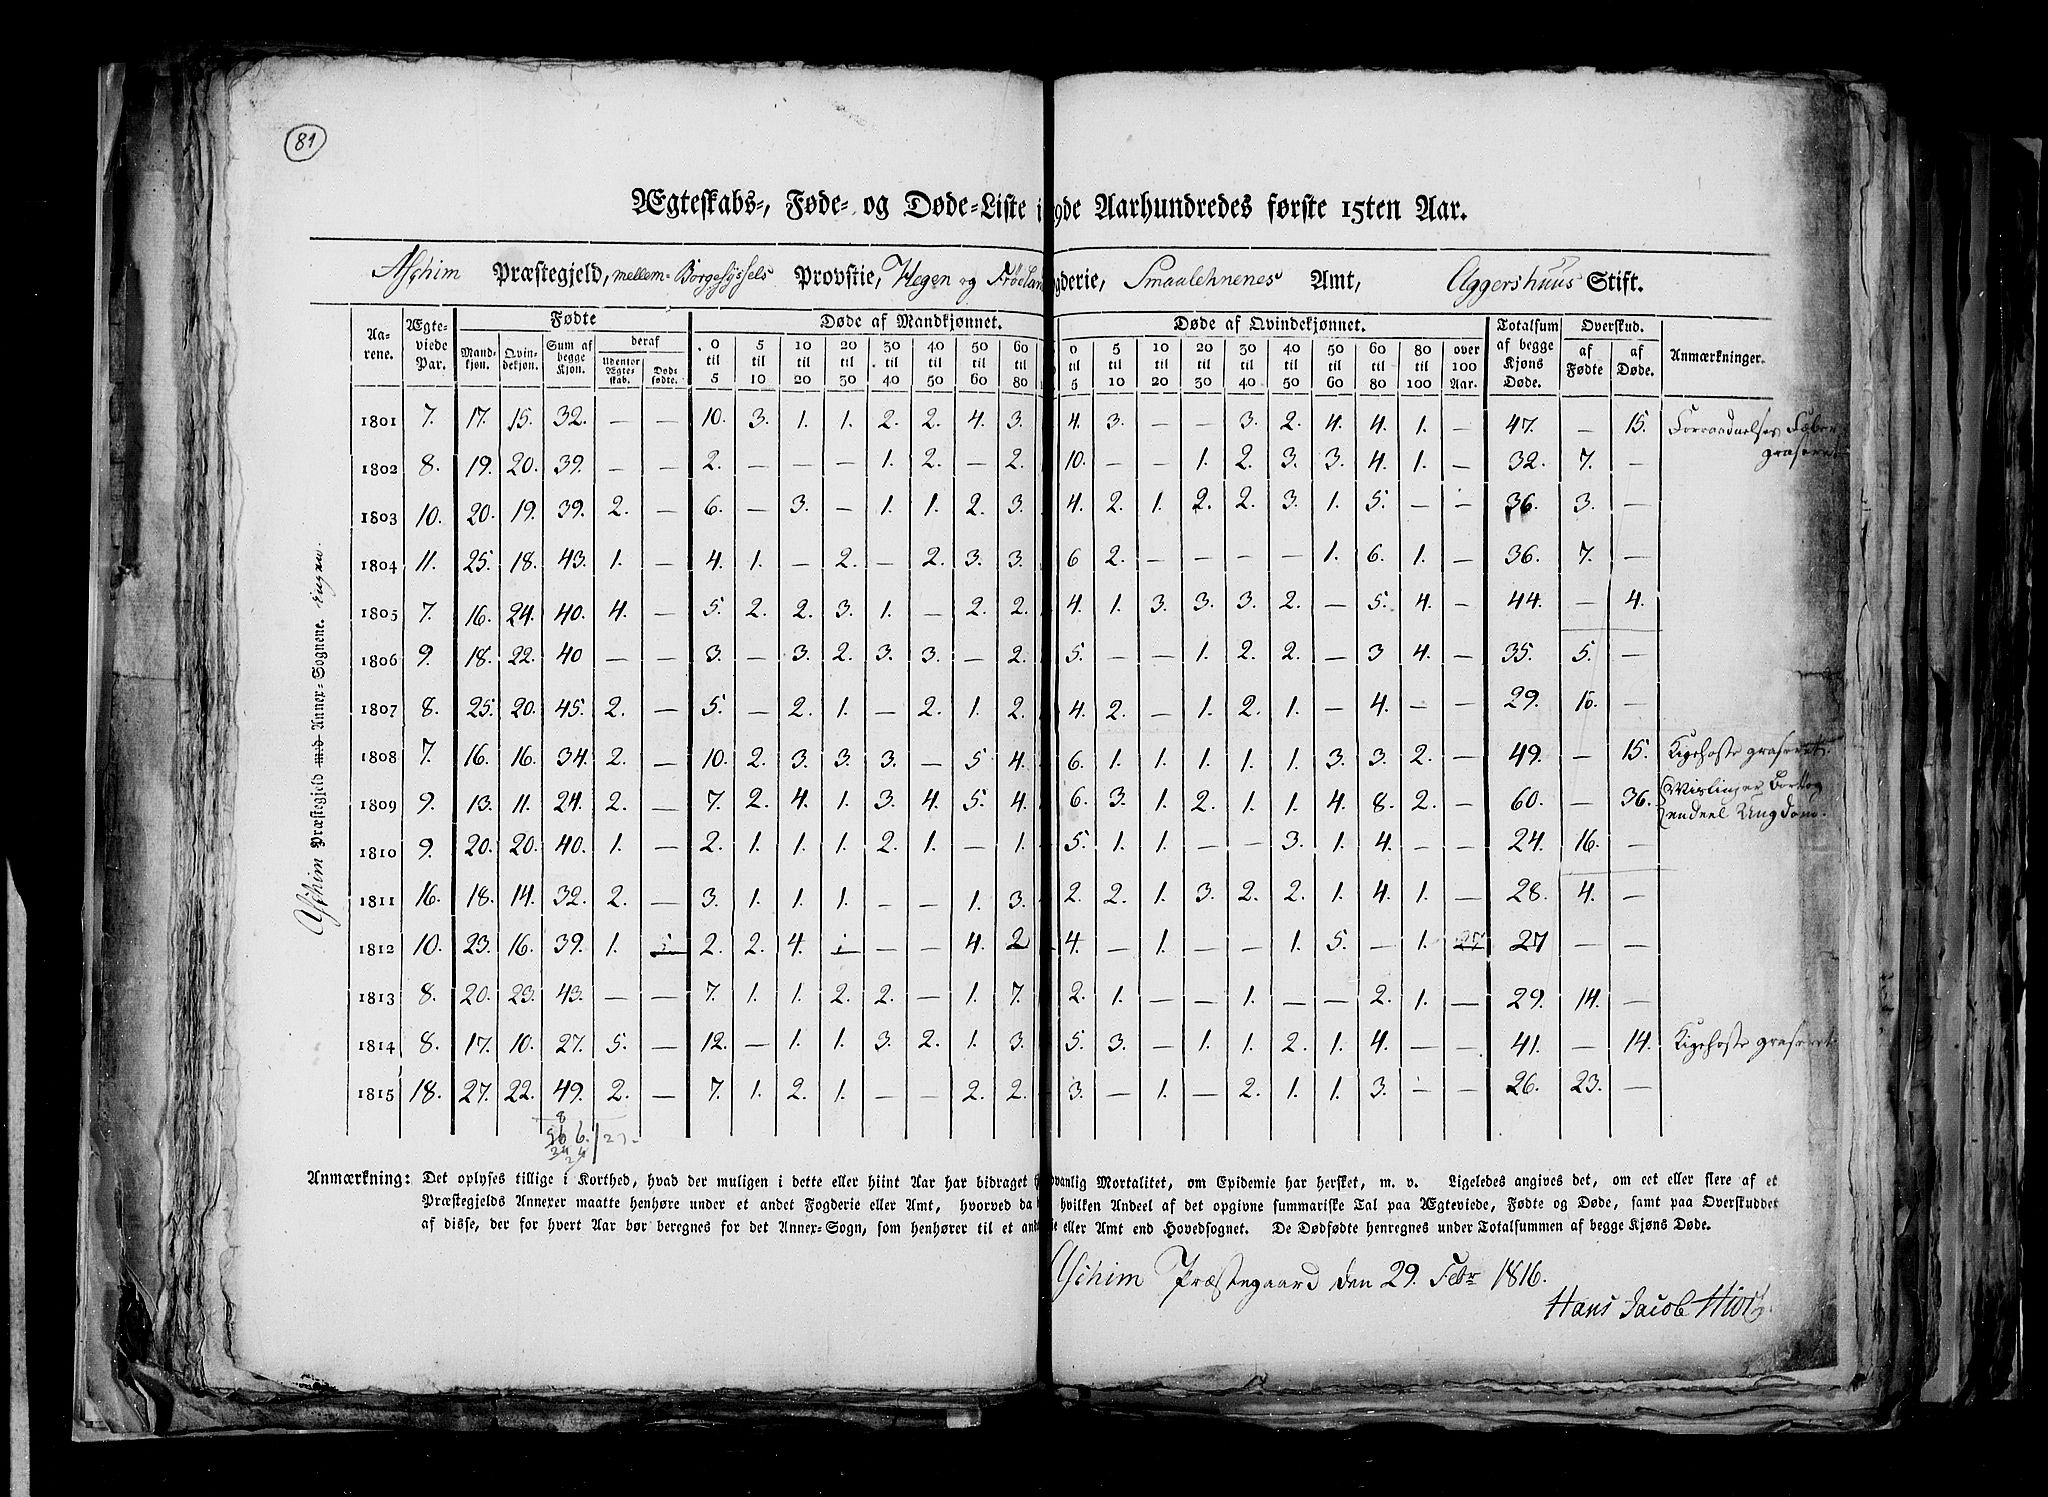 81
Ægteskabs-, Føde- og Døde-Liste i 19de Aarhundredes første 15ten Aar.
Aschim Præstegjeld, mellem-Borgesyssels Provstie, Hegen og Frøelan gderie, Smaalehnenes Amt, Aggershuus Stift.
Aarene. Ægteviede Par. Fødte Døde af Mandkjønnet. Døde af Qvindekjønnet. Totalsum af begge Kjøns Døde. Overskud. Anmærkninger.
Mandkjøn. Qvindekjøn. Sum af begge Kjøn. deraf Udenfor Ægteskab. Dødfødte. 0 til 5 5 til 10 10 til 20 20 til 30 30 til 40 40 til 50 50 til 60 60 til 80 0 til 5 5 til 10 10 til 20 20 til 30 30 til 40 40 til 50 50 til 60 60 til 80 80 til 100 over 100 Aar. af Fødte af Døde.
Aschim Præstegjeld med Annex-Sognene. Ingen.
1801 7. 17. 15. 32. — — 10. 3. 1. 1. 2. 2. 4. 3. 4. 3. — — 3. 2. 4. 4. 1. — 47. — 15. Forraadnelses Feber
graseret
1802 8. 19. 20. 39. — — 2. — — — 1. 2. — 2. 10. — — 1. 2. 3. 3. 4. 1. — 32. 7. —
1803 10. 20. 19. 39. 2. — 6. — 3. — 1. 1. 2. 3. 4. 2. 1. 2. 2. 3. 1. 5. — — 36. 3. —
1804 11. 25. 18. 43. 1. — 4. 1. — 2. — 2. 3. 3. 6 2. — — — — 1. 6. 1. — 36. 7. —
1805 7. 16. 24. 40. 4. — 5. 2. 2. 3. 1. — 2. 2. 4. 1. 3. 3. 3. 2. — 5. 4. — 44. — 4.
1806 9. 18. 22. 40 — — 3. — 3. 2. 3. 3. — 2. 5. — — 1. 2. 2. — 3 4. — 35. 5. —
1807 8. 25. 20. 45. 2. — 5. — 2. 1. — 2. 1. 2. 4. 2. — 1. 2. 1. — 4. — — 29. 16. —
1808 7. 16. 16. 34. 2. — 10. 2. 3. 3. 3. — 5 4. 6. 1. 1. 1. 1. 1. 3. 3. 2. — 49. — 15. Kigehoste graseret
1809 9. 13. 11. 24. 2. — 7. 2. 4. 1. 3. 4. 5. 4. 6. 3. 1. 2. 1. 1. 4. 8. 2. — 60. — 36. Meslinger Borttog
endeel Ungdom.
1810 9. 20. 20. 40. 1. — 2. 1. 1. 1. 2. 1. — 1. 5. 1. 1. — — 3. 1. 4. — — 24. 16. —
1811 16. 18. 14. 32. 2. — 3. 1. 1. 1. — — 1. 3. 2. 2. 1. 3. 2. 2. 1. 4. 1. — 28. 4. —
1812 10. 23. 16. 39. 1. — 2. 2. 4. — — — 4. 2 4. — 1. — — 1. 5. — 1. 27 27 — —
1813 8. 20. 23. 43. — — 7. 1. 1. 2. 2. — 1. 7. 2. 1. — — 1. — — 2. 1. — 29. 14. —
1814 8. 17. 10. 27. 5. — 12. — 1. 1. 3. 2. 1. 3. 5. 3. — 1. 1. 2. 1. 4. — — 41. — 14. Kigehoste graseret
1815 18. 27. 22. 49. 2. — 7. 1. 2. 1. — — 2. 2. 3. — 1. — 2. 1. 1. 3. — — 26. 23. —
8
566.
24
24
Anmærkning: Det oplyses tillige i Korthed, hvad der muligen i dette eller hiint Aar har bidraget vanlig Mortalitet, om Epidemie har hersket, m. v. Ligeledes angives det, om eet eller flere af et
Præstegjelds Annexer maatte henhøre under et andet Fogderie eller Amt, hvorved da hvilken Andeel af det opgivne summariske Tal paa Ægteviede, Fødte og Døde, samt paa Overskuddet
af disse, der for hvert Aar bør beregnes for det Annex-Sogn, som henhører til et and eller Amt end Hovedsognet. De Dødfødte henregnes under Totalsummen af begge Kjøns Døde.
Aschim Præstegaard den 29. Febr 1816.
Hans Jacob